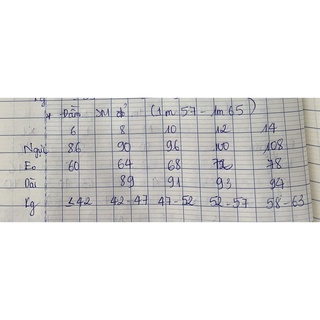 * Đầm SM đỏ (1m57 - 1m65)
6 8 10 12 14
Ngực 86 90 96 100 108
Eo 60 64 68 72 78
Dài 89 91 93 94
Kg ≤42 42-47 47-52 52-57 58-63